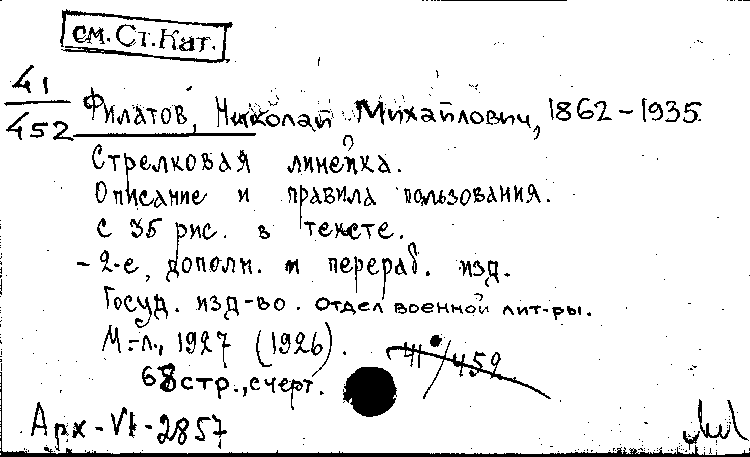 см. Ст. Кат.
41
452
Филатов, Николай Михайлович, 1862-1935
Стрелковая линейка.
Описание и правила пользования.
с 35 рис. в тексте.
- 2-е, дополн. и перераб. изд.
Госуд. изд-во. отдел военной лит-ры.
М.-Л., 1927 (1926).
41/452
68 стр., с черт.
Арх-VI-2857